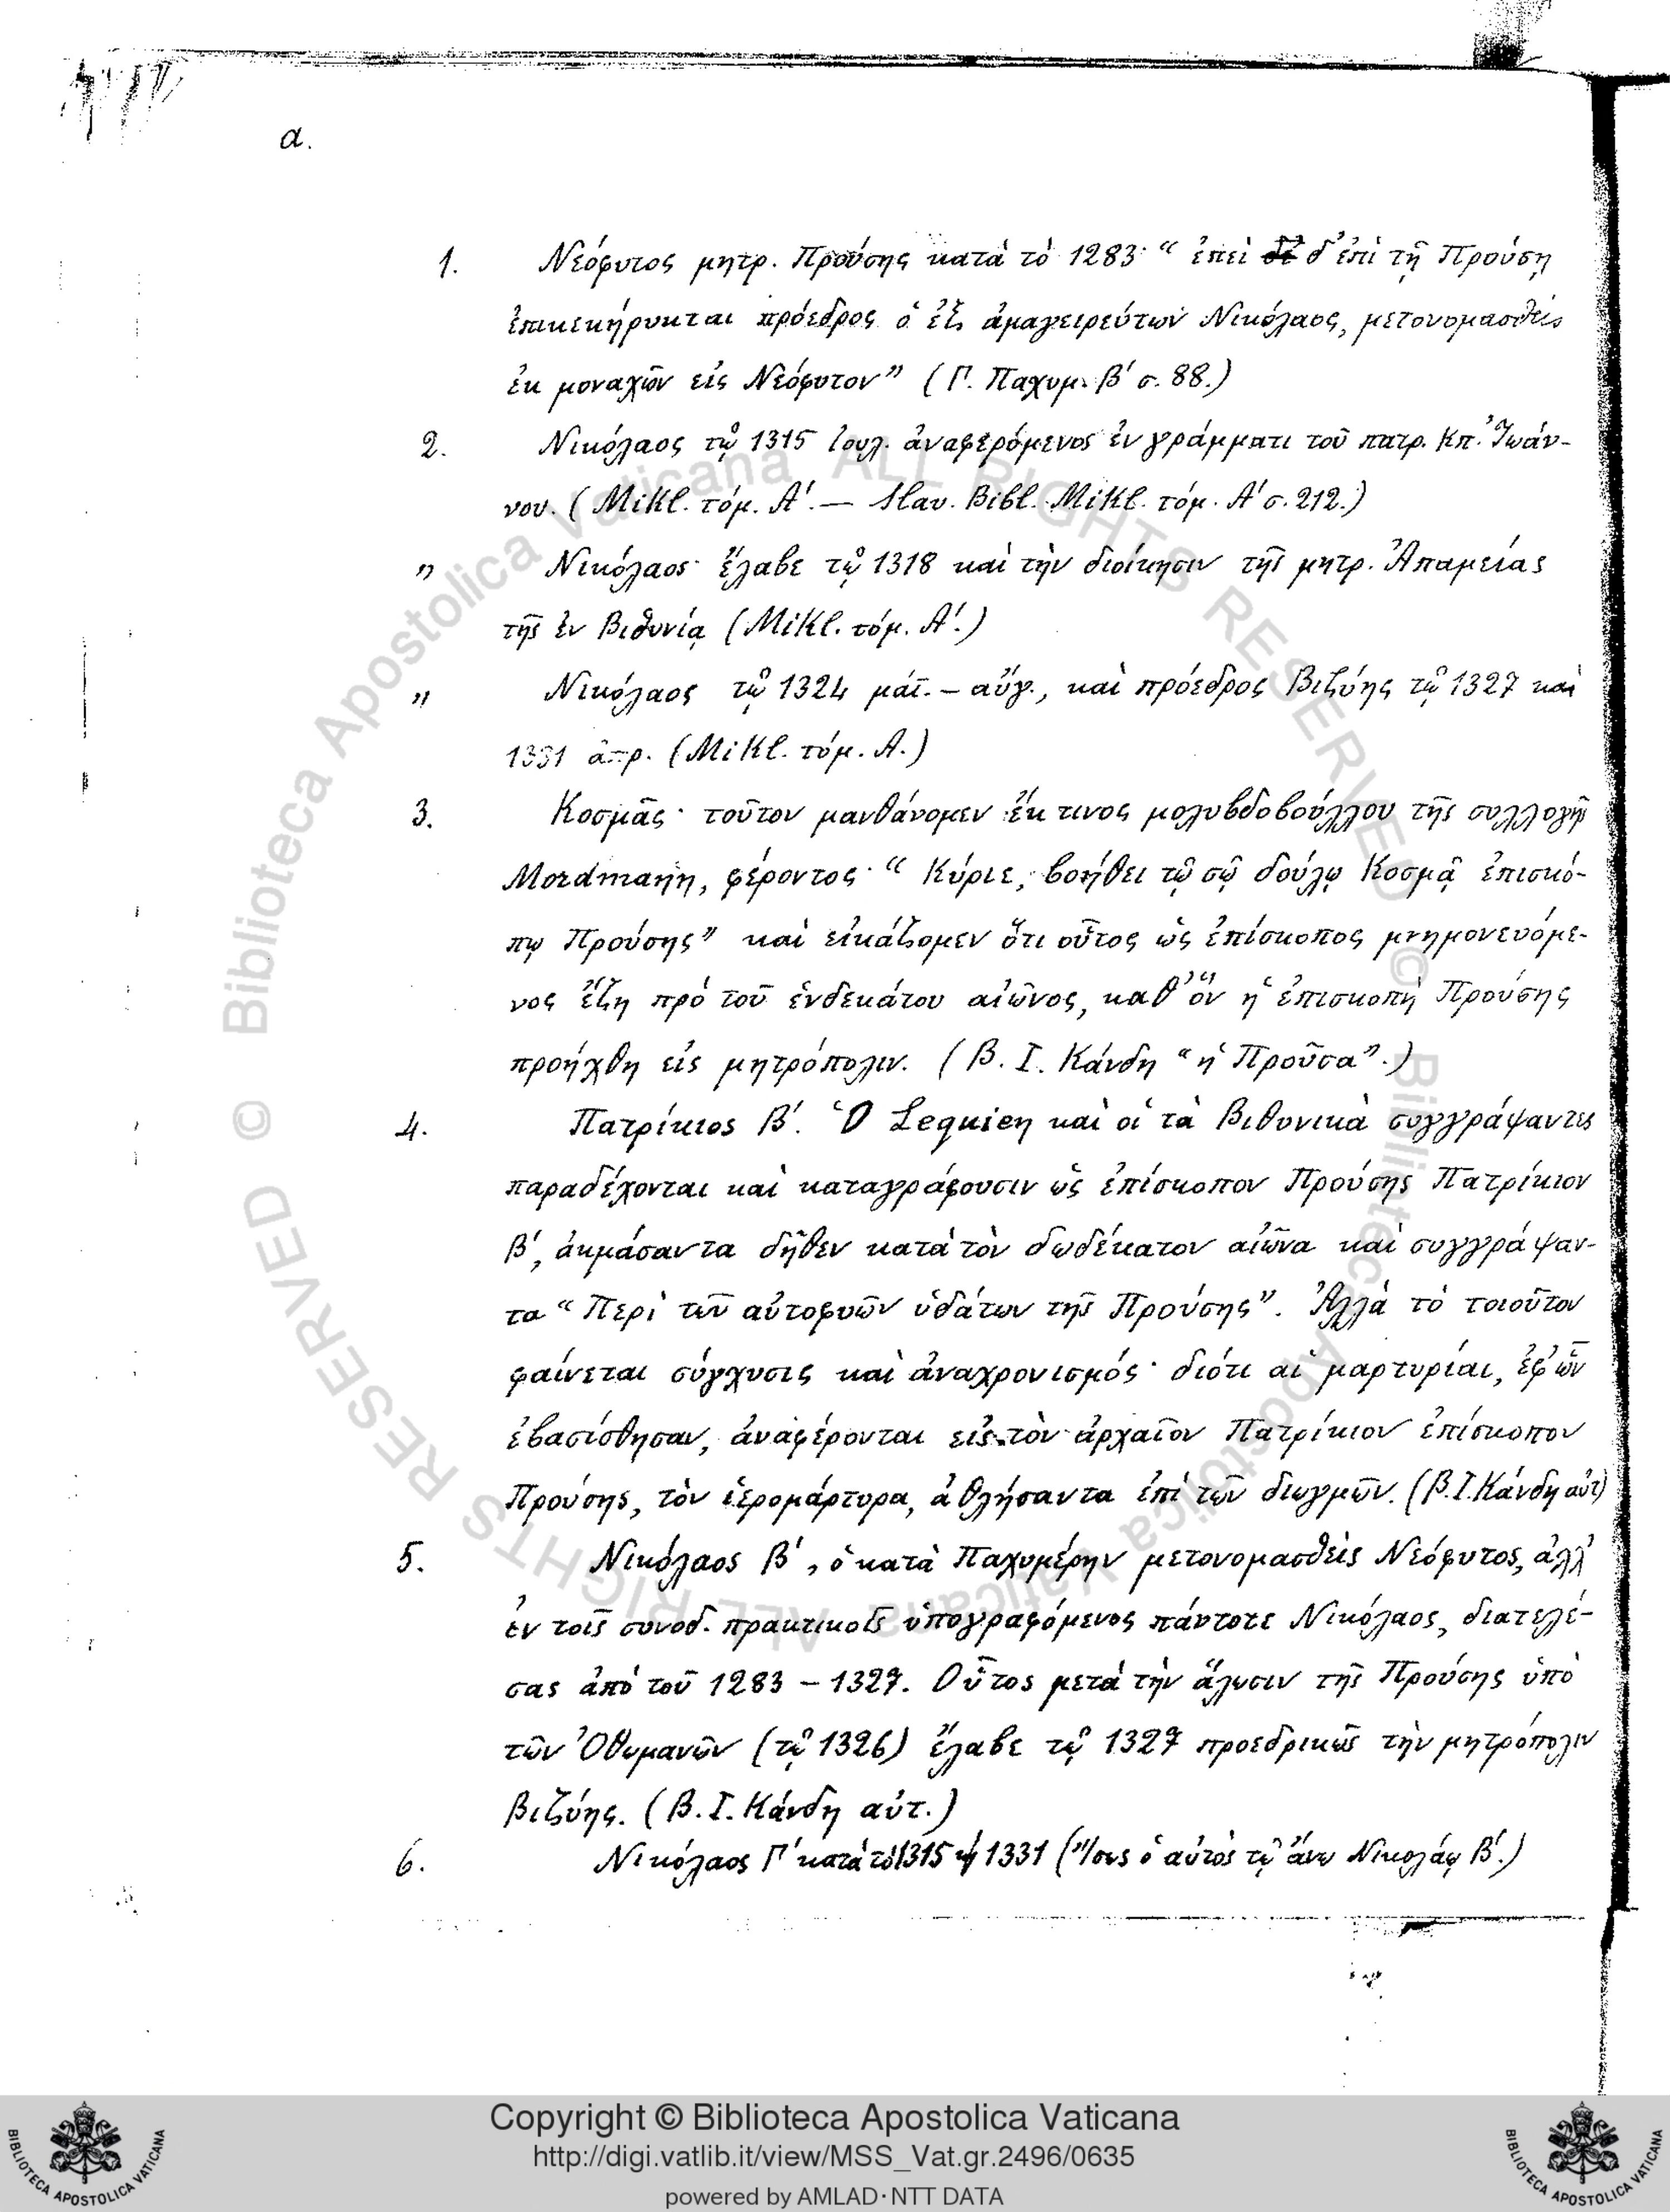 α.
1. Νεόφυτος μητρ. Προύσης κατὰ τὸ 1283· “ ἐπεὶ δ’ἐπὶ τῇ Προύσῃ
ἐπικεκήρυκται πρόεδρος ὁ ἐξ ἀμαγειρεύτων Νικόλαος, μετονομασθεὶς
ἐκ μοναχῶν εἰς Νεόφυτον” (Γ. Παχυμ. β′ σ. 88.)
2. Νικόλαος τῷ 1315 ἰουλ. ἀναφερόμενος ἐν γράμματι τοῦ πατρ. Κπ. Ἰωάν-
νου. (Mikl. τόμ. Α′. — Slav. Bibl. Mikl. τόμ. Α′ σ. 212.)
” Νικόλαος ἔλαβε τῷ 1318 καὶ τὴν διοίκησιν τῆς μητρ. Ἀπαμείας
τῆς ἐν Βιθυνίᾳ (Mikl. τόμ. Α′.)
” Νικόλαος τῷ 1324 μάϊ. – αὔγ., καὶ πρόεδρος Βιζύης τῷ 1327 καὶ
1331 ἀπρ. (Mikl. τόμ. Α.)
3. Κοσμᾶς· τοῦτον μανθάνομεν ἔκ τινος μολυβδοβούλλου τῆς συλλογῆς
Mordmann, φέροντος· “ Κύριε, βοήθει τῷ σῷ δούλῳ Κοσμᾷ ἐπισκό-
πῳ Προύσης” καὶ εἰκάζομεν ὅτι οὗτος ὡς ἐπίσκοπος μνημονευόμε-
νος ἔζη πρὸ τοῦ ἑνδεκάτου αἰῶνος, καθ’ ὃν ἡ ἐπισκοπὴ Προύσης
προήχθη εἰς μητρόπολιν. (Β. Ι. Κάνδη “ἡ Προῦσα”.)
4. Πατρίκιος Β′. Ὁ Lequien καὶ οἱ τὰ Βιθυνικὰ συγγράψαντες
παραδέχονται καὶ καταγράφουσιν ὡς ἐπίσκοπον Προύσης Πατρίκιον
Β′, ἀκμάσαντα δῆθεν κατὰ τὸν δωδέκατον αἰῶνα καὶ συγγράψαν-
τα “ Περὶ τῶν αὐτοφυῶν ὑδάτων τῆς Προύσης”. Ἀλλὰ τὸ τοιοῦτον
φαίνεται σύγχυσις καὶ ἀναχρονισμός· διότι αἱ μαρτυρίαι, ἐφ’ ὧν
ἐβασίσθησαν, ἀναφέρονται εἰς τὸν ἀρχαῖον Πατρίκιον ἐπίσκοπον
Προύσης, τὸν ἱερομάρτυρα, ἀθλήσαντα ἐπὶ τῶν διωγμῶν. (Β. Ι. Κάνδη αὐτ)
5. Νικόλαος Β′, ὁ κατὰ Παχυμέρην μετονομασθεὶς Νεόφυτος, ἀλλ’
ἐν τοῖς συνοδ. πρακτικοῖς ὑπογραφόμενος πάντοτε Νικόλαος, διατελέ-
σας ἀπὸ τοῦ 1283 – 1327. Οὗτος μετὰ τὴν ἅλωσιν τῆς Προύσης ὑπὸ
τῶν Ὀθωμανῶν (τῷ 1326) ἔλαβε τῷ 1327 προεδρικῶς τὴν μητρόπολιν
Βιζύης. (Β. Ι. Κάνδη αὐτ.)
6. Νικόλαος Γ′ κατὰ τὸ 1315 ἢ 1331 (Ἴσως ὁ αὐτὸς τῷ ἄνω Νικολάῳ Β′.)
© Biblioteca Apostolica Vaticana ALL RIGHTS RESERVED © Biblioteca Apostolica Vaticana ALL RIGHTS RESERVED
Copyright © Biblioteca Apostolica Vaticana
http://digi.vatlib.it/view/MSS_Vat.gr.2496/0635
powered by AMLAD·NTT DATA
BIBLIOTECA APOSTOLICA VATICANA
BIBLIOTECA APOSTOLICA VATICANA